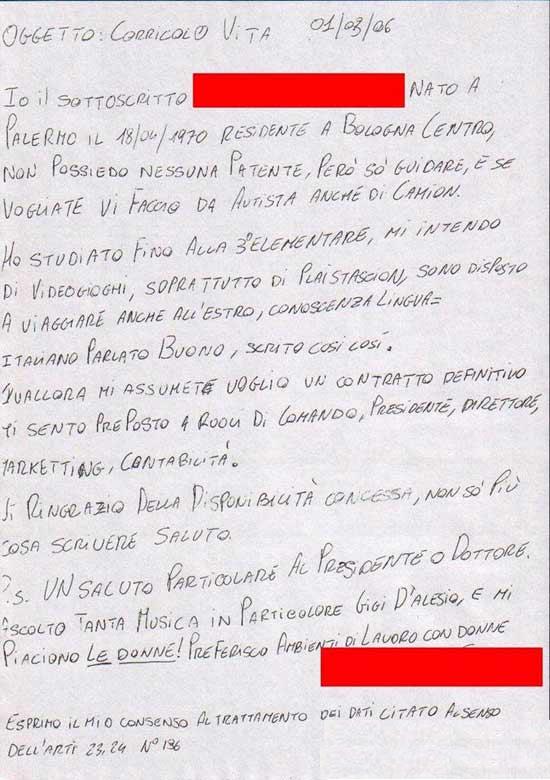 OGGETTO: CORRICOLO VITA 01/03/06
IO IL SOTTOSCRITTO NATO A
PALERMO IL 18/04/1970 RESIDENTE A BOLOGNA CENTRO,
NON POSSIEDO NESSUNA PATENTE, PERÒ SÒ GUIDARE, E SE
VOGLIATE VI FACCIO DA AUTISTA ANCHE DI CAMION.
HO STUDIATO FINO ALLA 3° ELEMENTARE, MI INTENDO
DI VIDEOGIOGHI, SOPRATTUTTO DI PLAISTASCION, SONO DISPOSTO
A VIAGGIARE ANCHE ALL'ESTRO, CONOSCENZA LINGUA=
ITALIANO PARLATO BUONO, SCRITO COSI COSÍ.
QUALLORA MI ASSUMETE VOGLIO UN CONTRATTO DEFINITIVO
MI SENTO PREPOSTO A RUOLI DI COMANDO, PRESIDENTE, DIRETTORE,
MARKETTING, CONTABILITÁ.
VI RINGRAZIO DELLA DISPONIBILITÀ CONCESSA, NON SÒ PIÙ
COSA SCRIVERE SALUTO.
P.S. UN SALUTO PARTICOLARE AL PRESIDENTE O DOTTORE.
ASCOLTO TANTA MUSICA IN PARTICOLORE GIGI D'ALESIO, E MI
PIACIONO LE DONNE! PREFERISCO AMBIENTI DI LAVORO CON DONNE
ESPRIMO IL MIO CONSENSO AL TRATTAMENTO DEI DATI CITATO AL SENSO
DELL'ARTI 23,24 N° 196